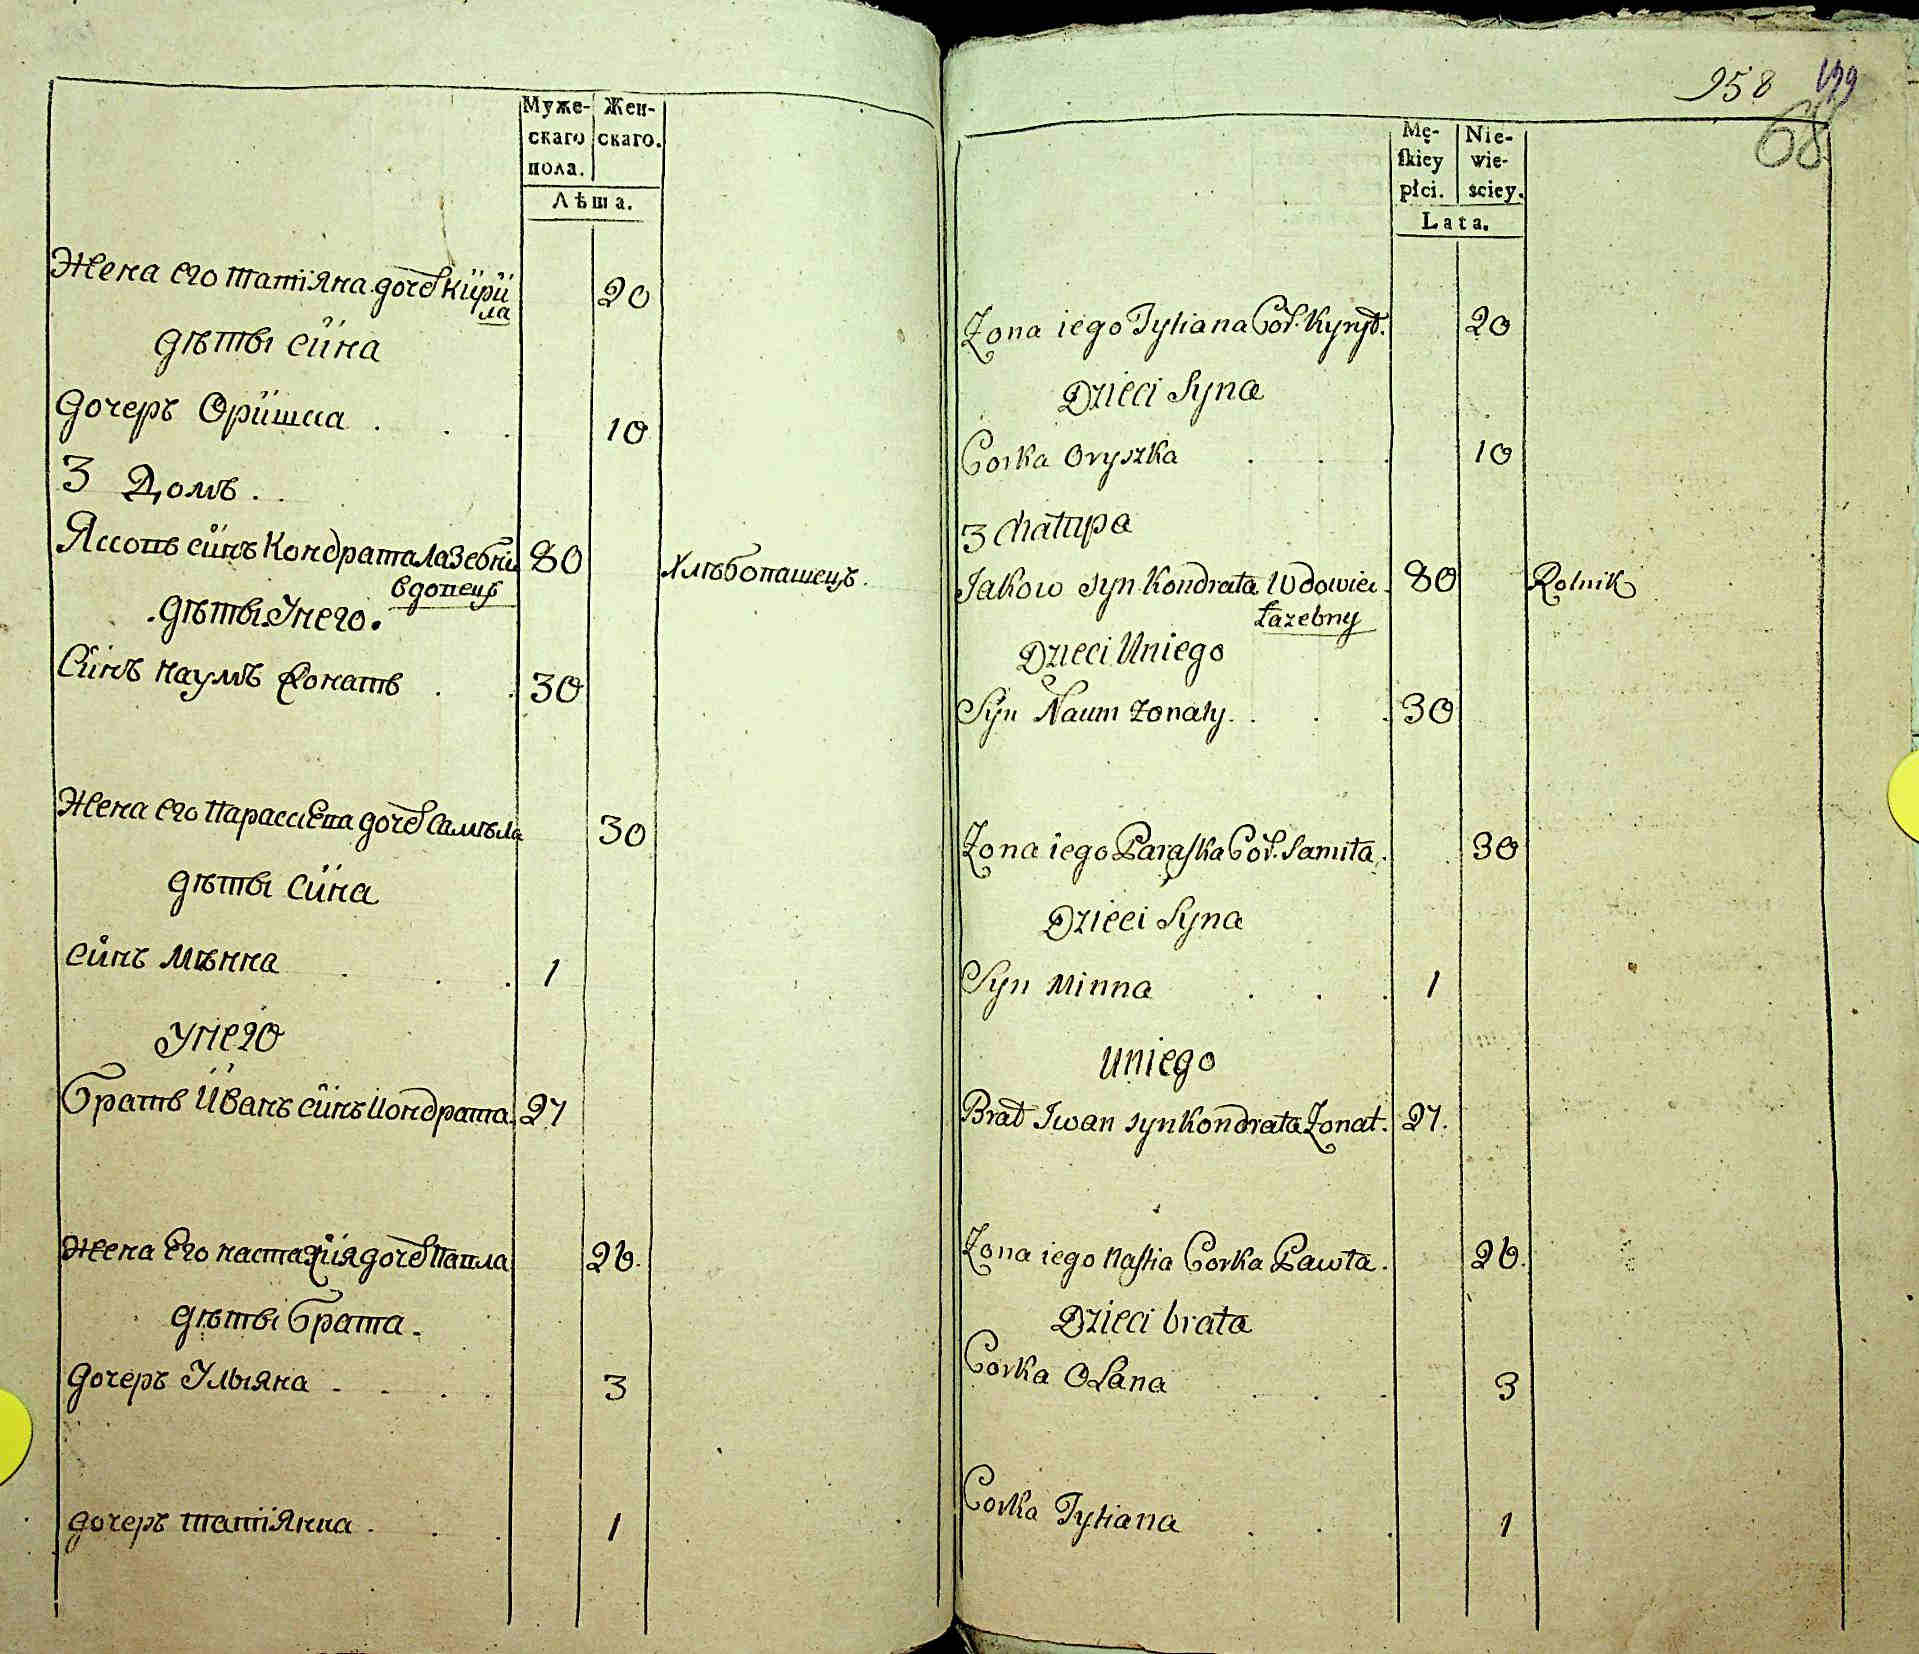 Муже-
скаго
пола.
Жен-
скаго.
Лѣта.
Жена его татіяна дочь Кири
ла
дѣты сина
дочеръ Оришка 10
20
3 Домъ.
Яковъ синъ Кондрата Лазебни 80 Хлѣбопашецъ.
вдовецъ
дѣты Унего.
Синъ наумъ Жонатъ 30
Жена его Параскева дочь Самѣла 30
дѣты Сина
синъ Мѣнна 1
унего
братъ Иванъ синъ Кондрата. 27
Жена Его настазия дочь Павла 26.
дѣты брата.
дочеръ Ульяна 3
дочеръ татіянна 1
958 68
Mę-
skiey
płci.
Nie-
wie-
sciey.
Lata.
Zona iego Tytiana Cór. Kyrył. 20
Dzieci Syna
Corka Oryszka 10
3 Chałupa
Jakow syn Kondrata Wdowiec 80 Rolnik
Łazebny
Dzieci Uniego
Syn Naum Zonaty. 30
Zona iego Paraska Cór. Samiła. 30
Dzieci Syna
Syn Minna 1
Uniego
Brat Iwan syn Kondrata Zonat. 27.
Zona iego Nastia Corka Pawła. 26.
Dzieci brata
Corka Olana 3
Corka Tytiana 1